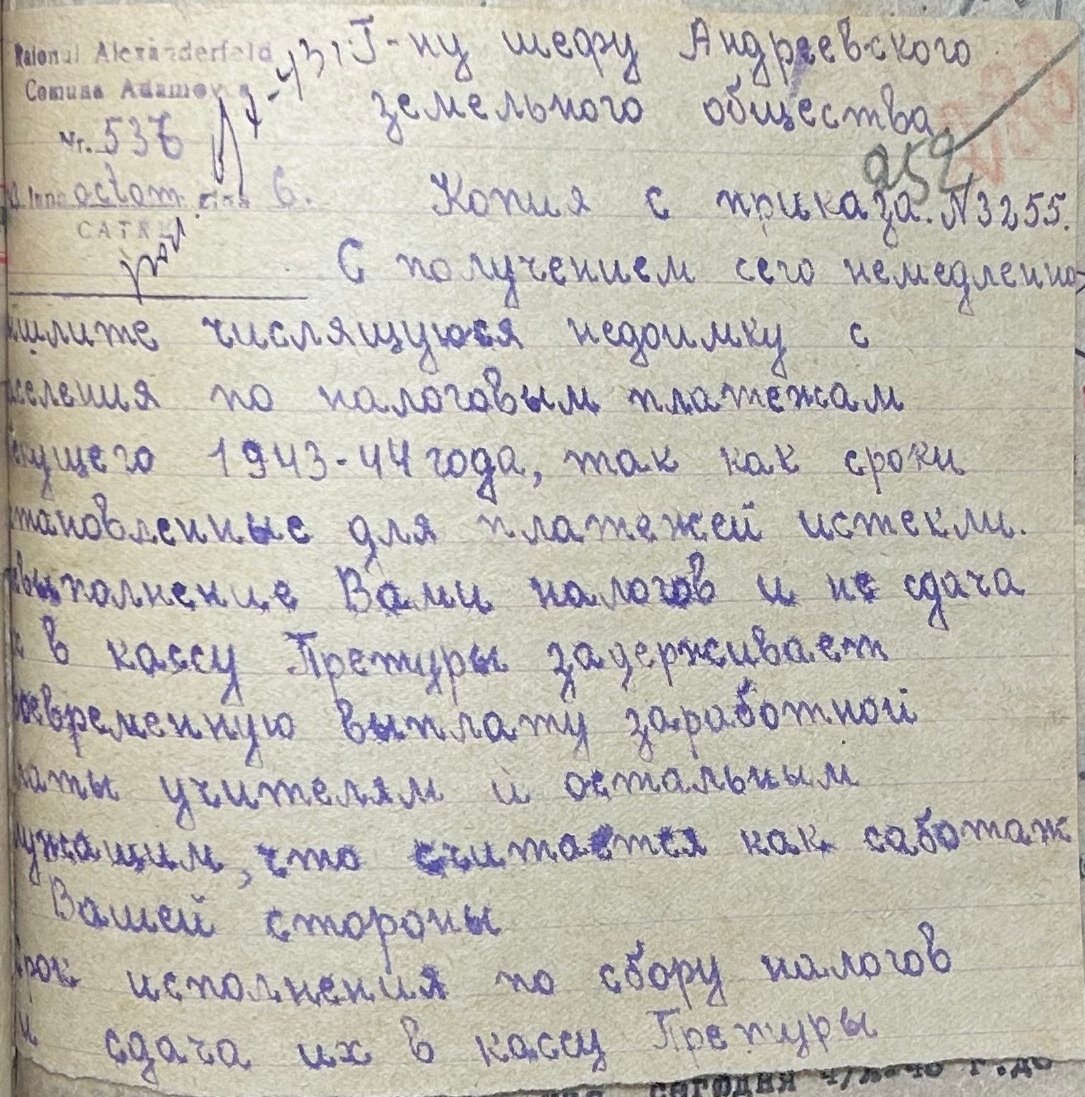 Raionul Alexanderfeld
Comuna Adamovca
Nr. 536
octom. 6.
CATRE
Г-ну шефу Андреевского
земельного общества
252
Копия с приказа. N3255.
С получением сего немедленно
числящуюся недоимку с
населения по налоговым платежам
текущего 1943-44 года, так как сроки
установленные для платежей истекли.
Невыполнение Вами налогов и не сдача
их в кассу Претуры задерживает
своевременную выплату заработной
платы учителям и остальным
служащим, что считается как саботаж
Вашей стороны
Срок исполнения по сбору налогов
и сдача их в кассу Претуры
сегодня г. до